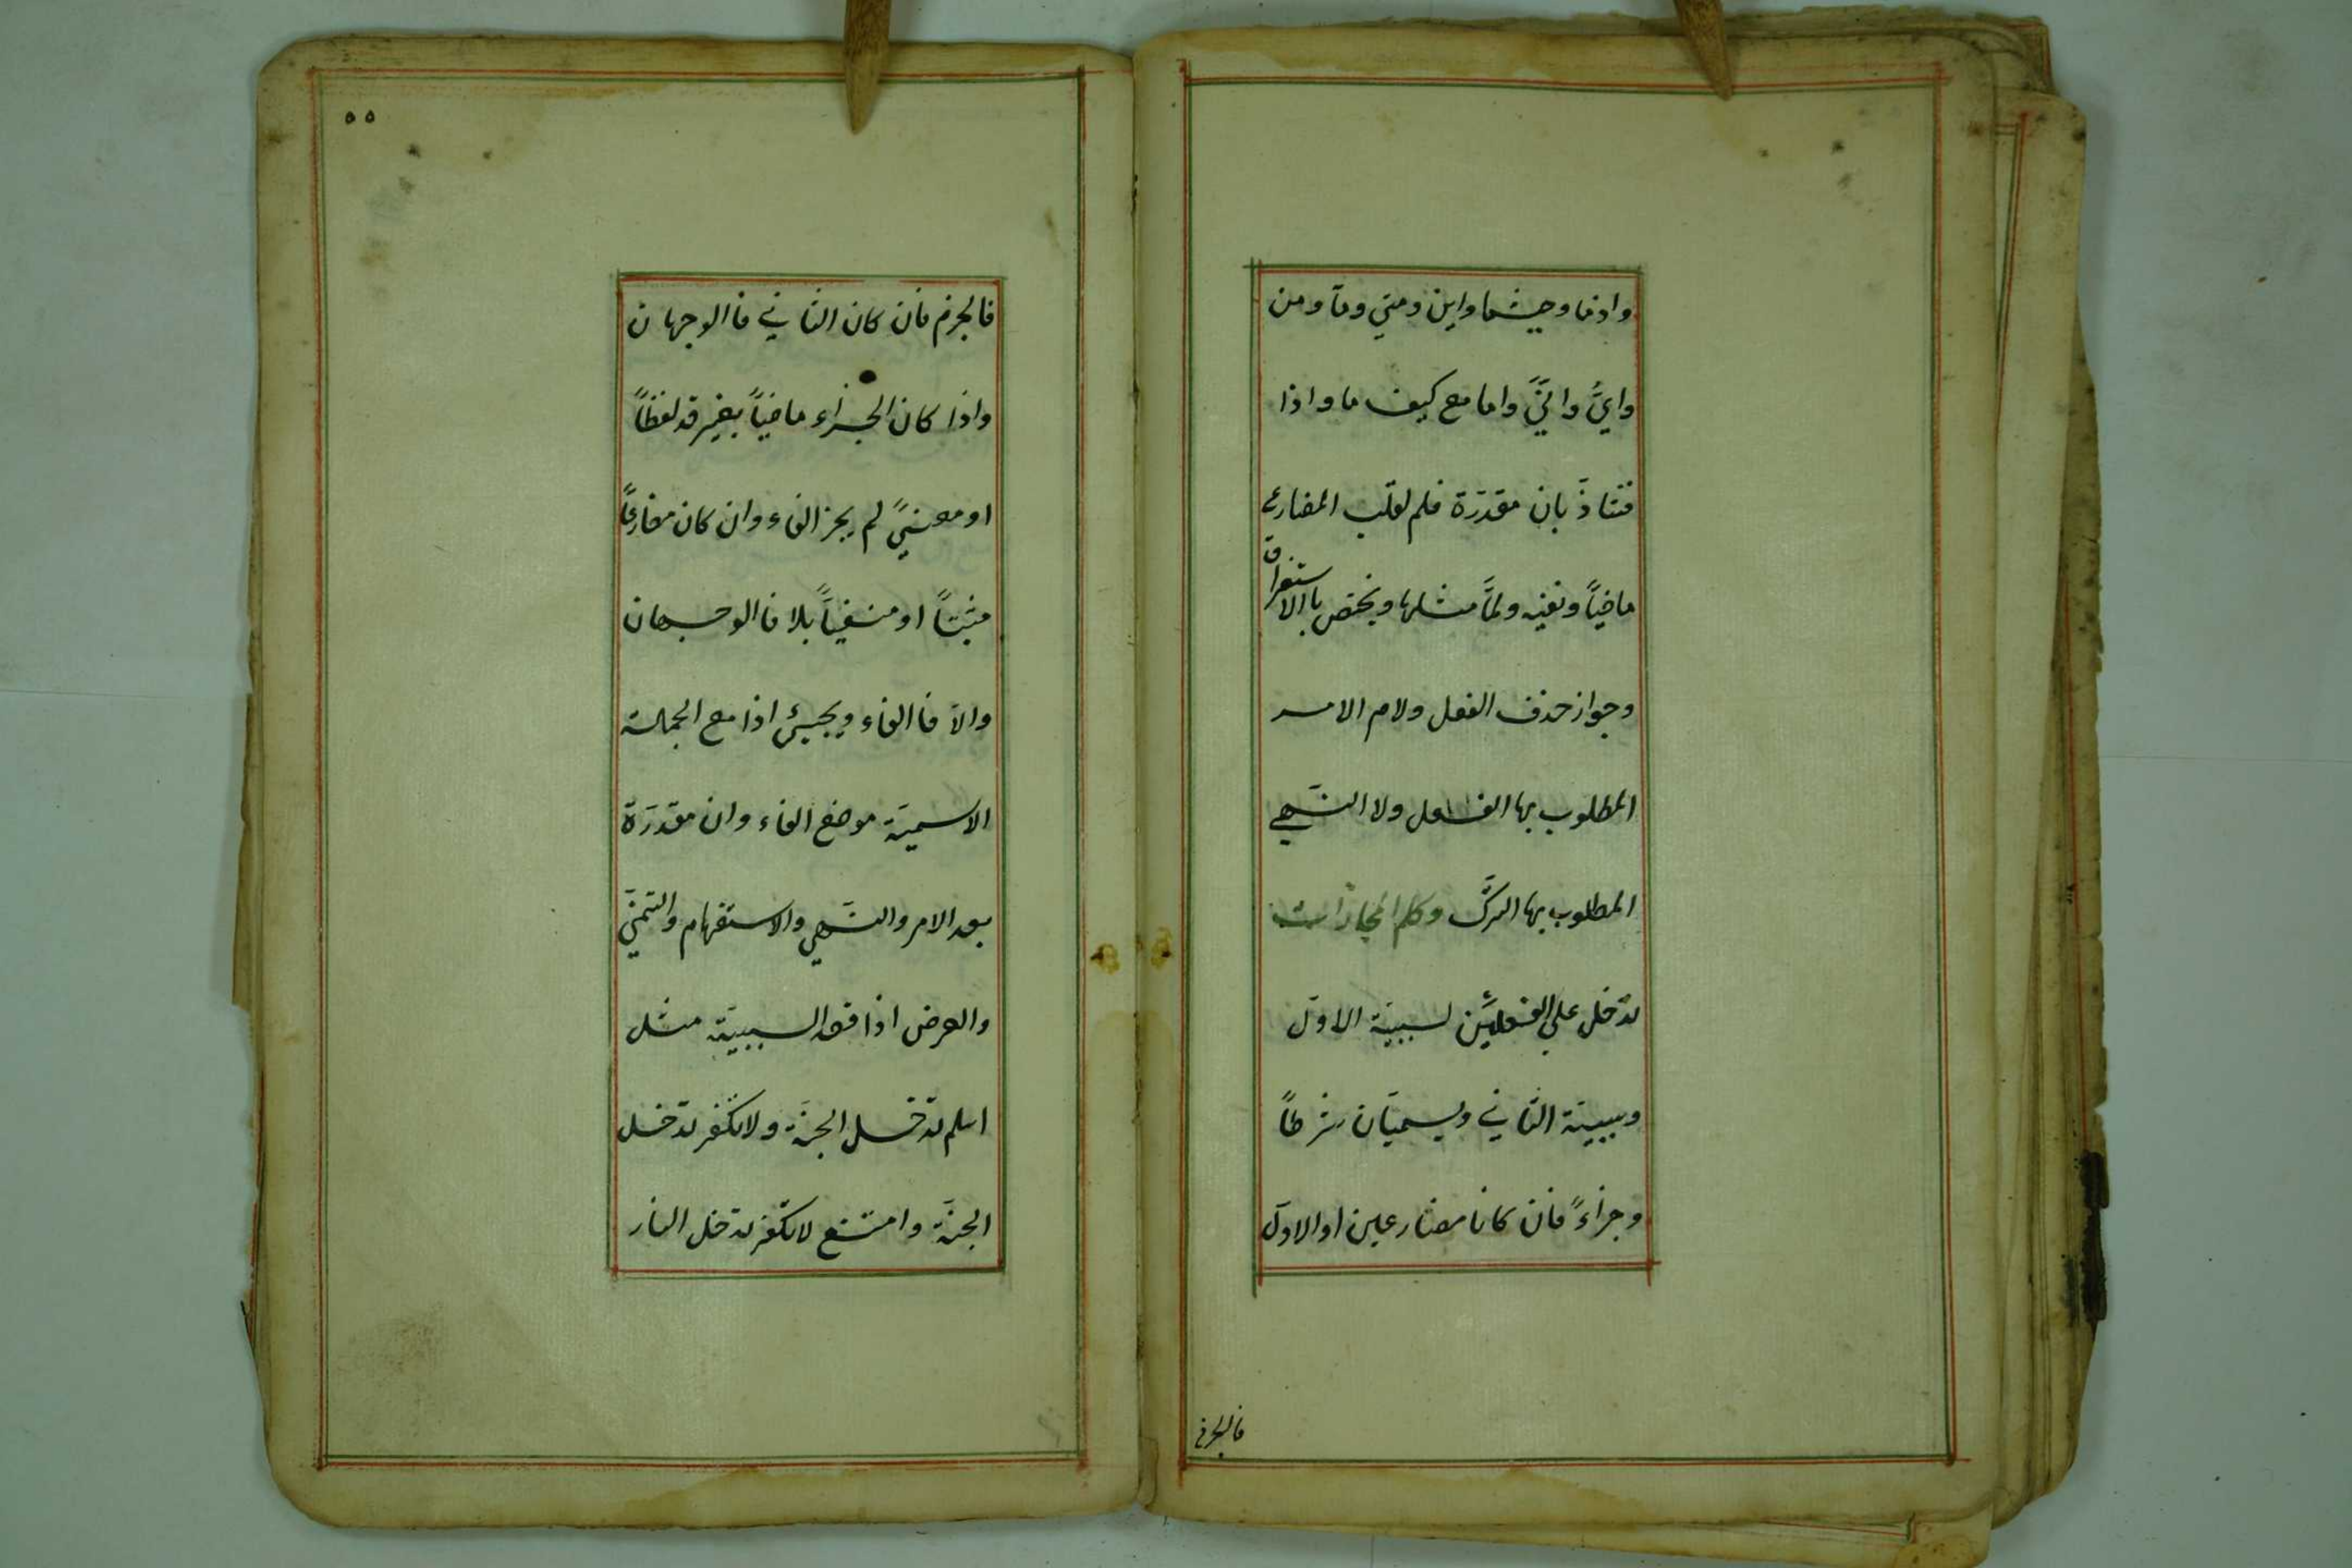 واذما وحيثما واين ومتي وما ومن
وايُّ وانّيَ واما مع كيف ما واذا
فشاذّ بان مقدرَة فلم لقلب المضارع
ماضياً ونفيه ولمّا مثلها ويختص باالاستغراق
وجواز حذف الفعل ولام الامر
المطلوب بها الفعل ولا النَّهي
المطلوب بها الترك وكلم المجازات
تدخل علي الفعلين لسببيَة الاوّل
وسببيَة الثاني ويسميَان شرطاً
وجزاءً فان كانا مضارعين او الاوّل
فالجزم
فالجزم فان كان الثاني فاالوجهان
واذا كان الجزاء ماضياً بغير قد لفظاً
او معنيً لم يجز الفاء وان كان مضارعاً
مثبتاً او منفيّاً بلا فاالوجهان
والاّ فاالفاء ويجيئ اذا مع الجملة
الاسميَة موضع الفاء وان مقدرَة
بعد الامر والنَّهي والاستفهام والتمنيَ
والعرض اذا قصد السببيَة مثل
اسلم تدخل الجنَة ولا تكفر تدخل
الجنَة وامتنع لا تكفر تدخل النار
٥٥